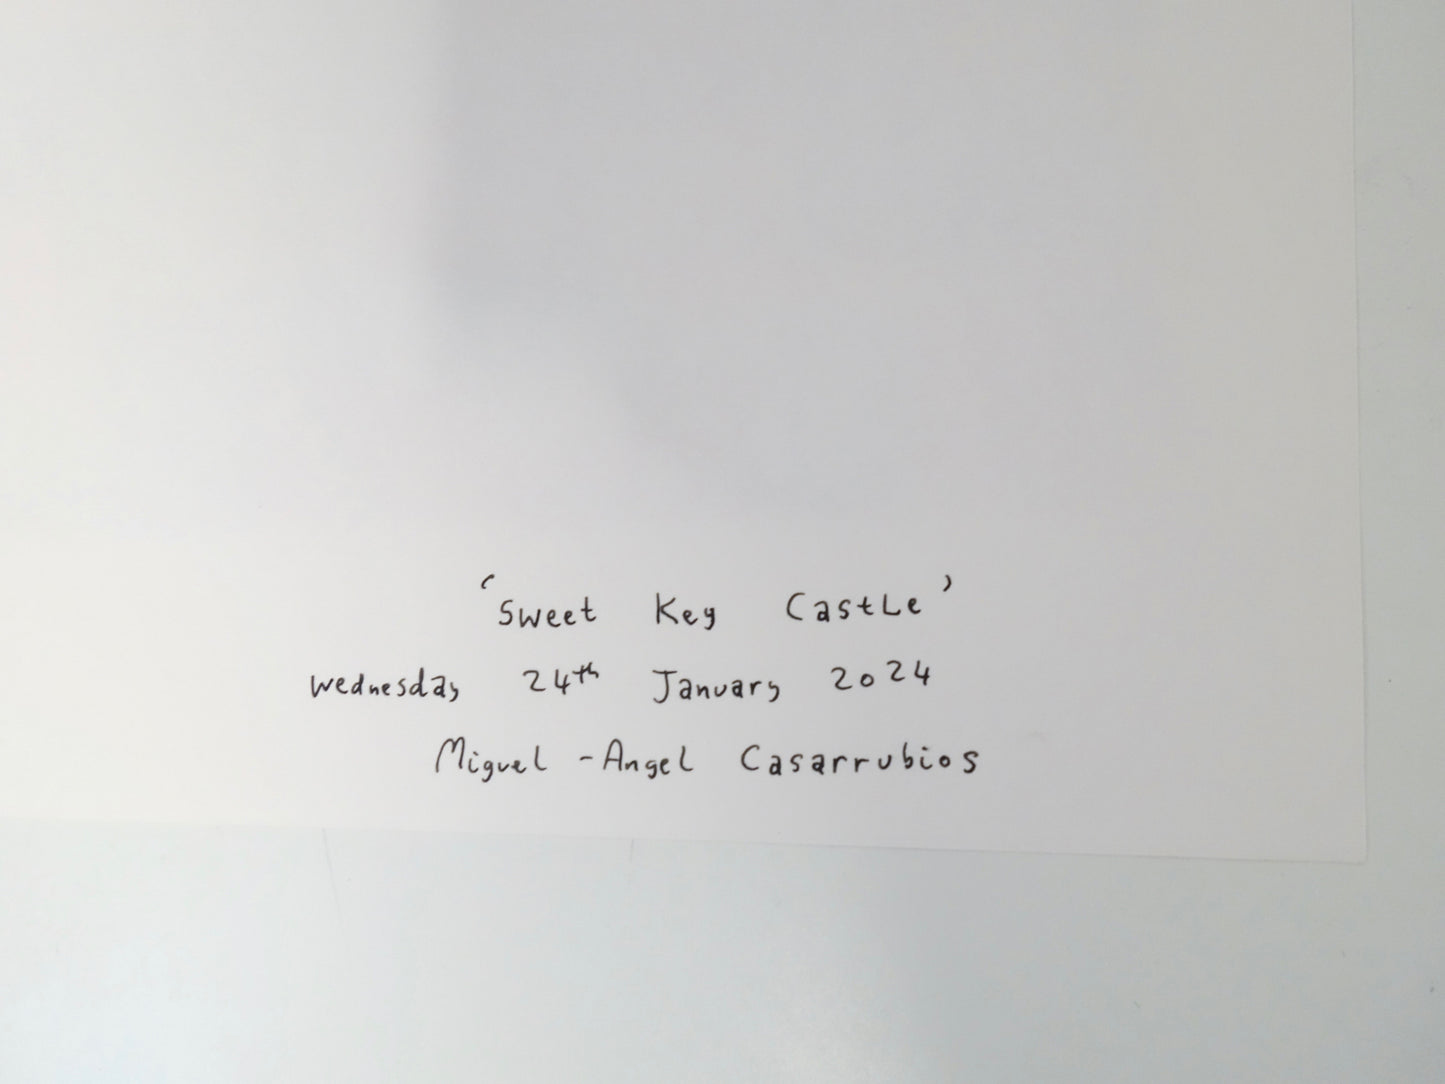 'Sweet Key Castle'
Wednesday 24th January 2024
Miguel-Angel Casarrubios